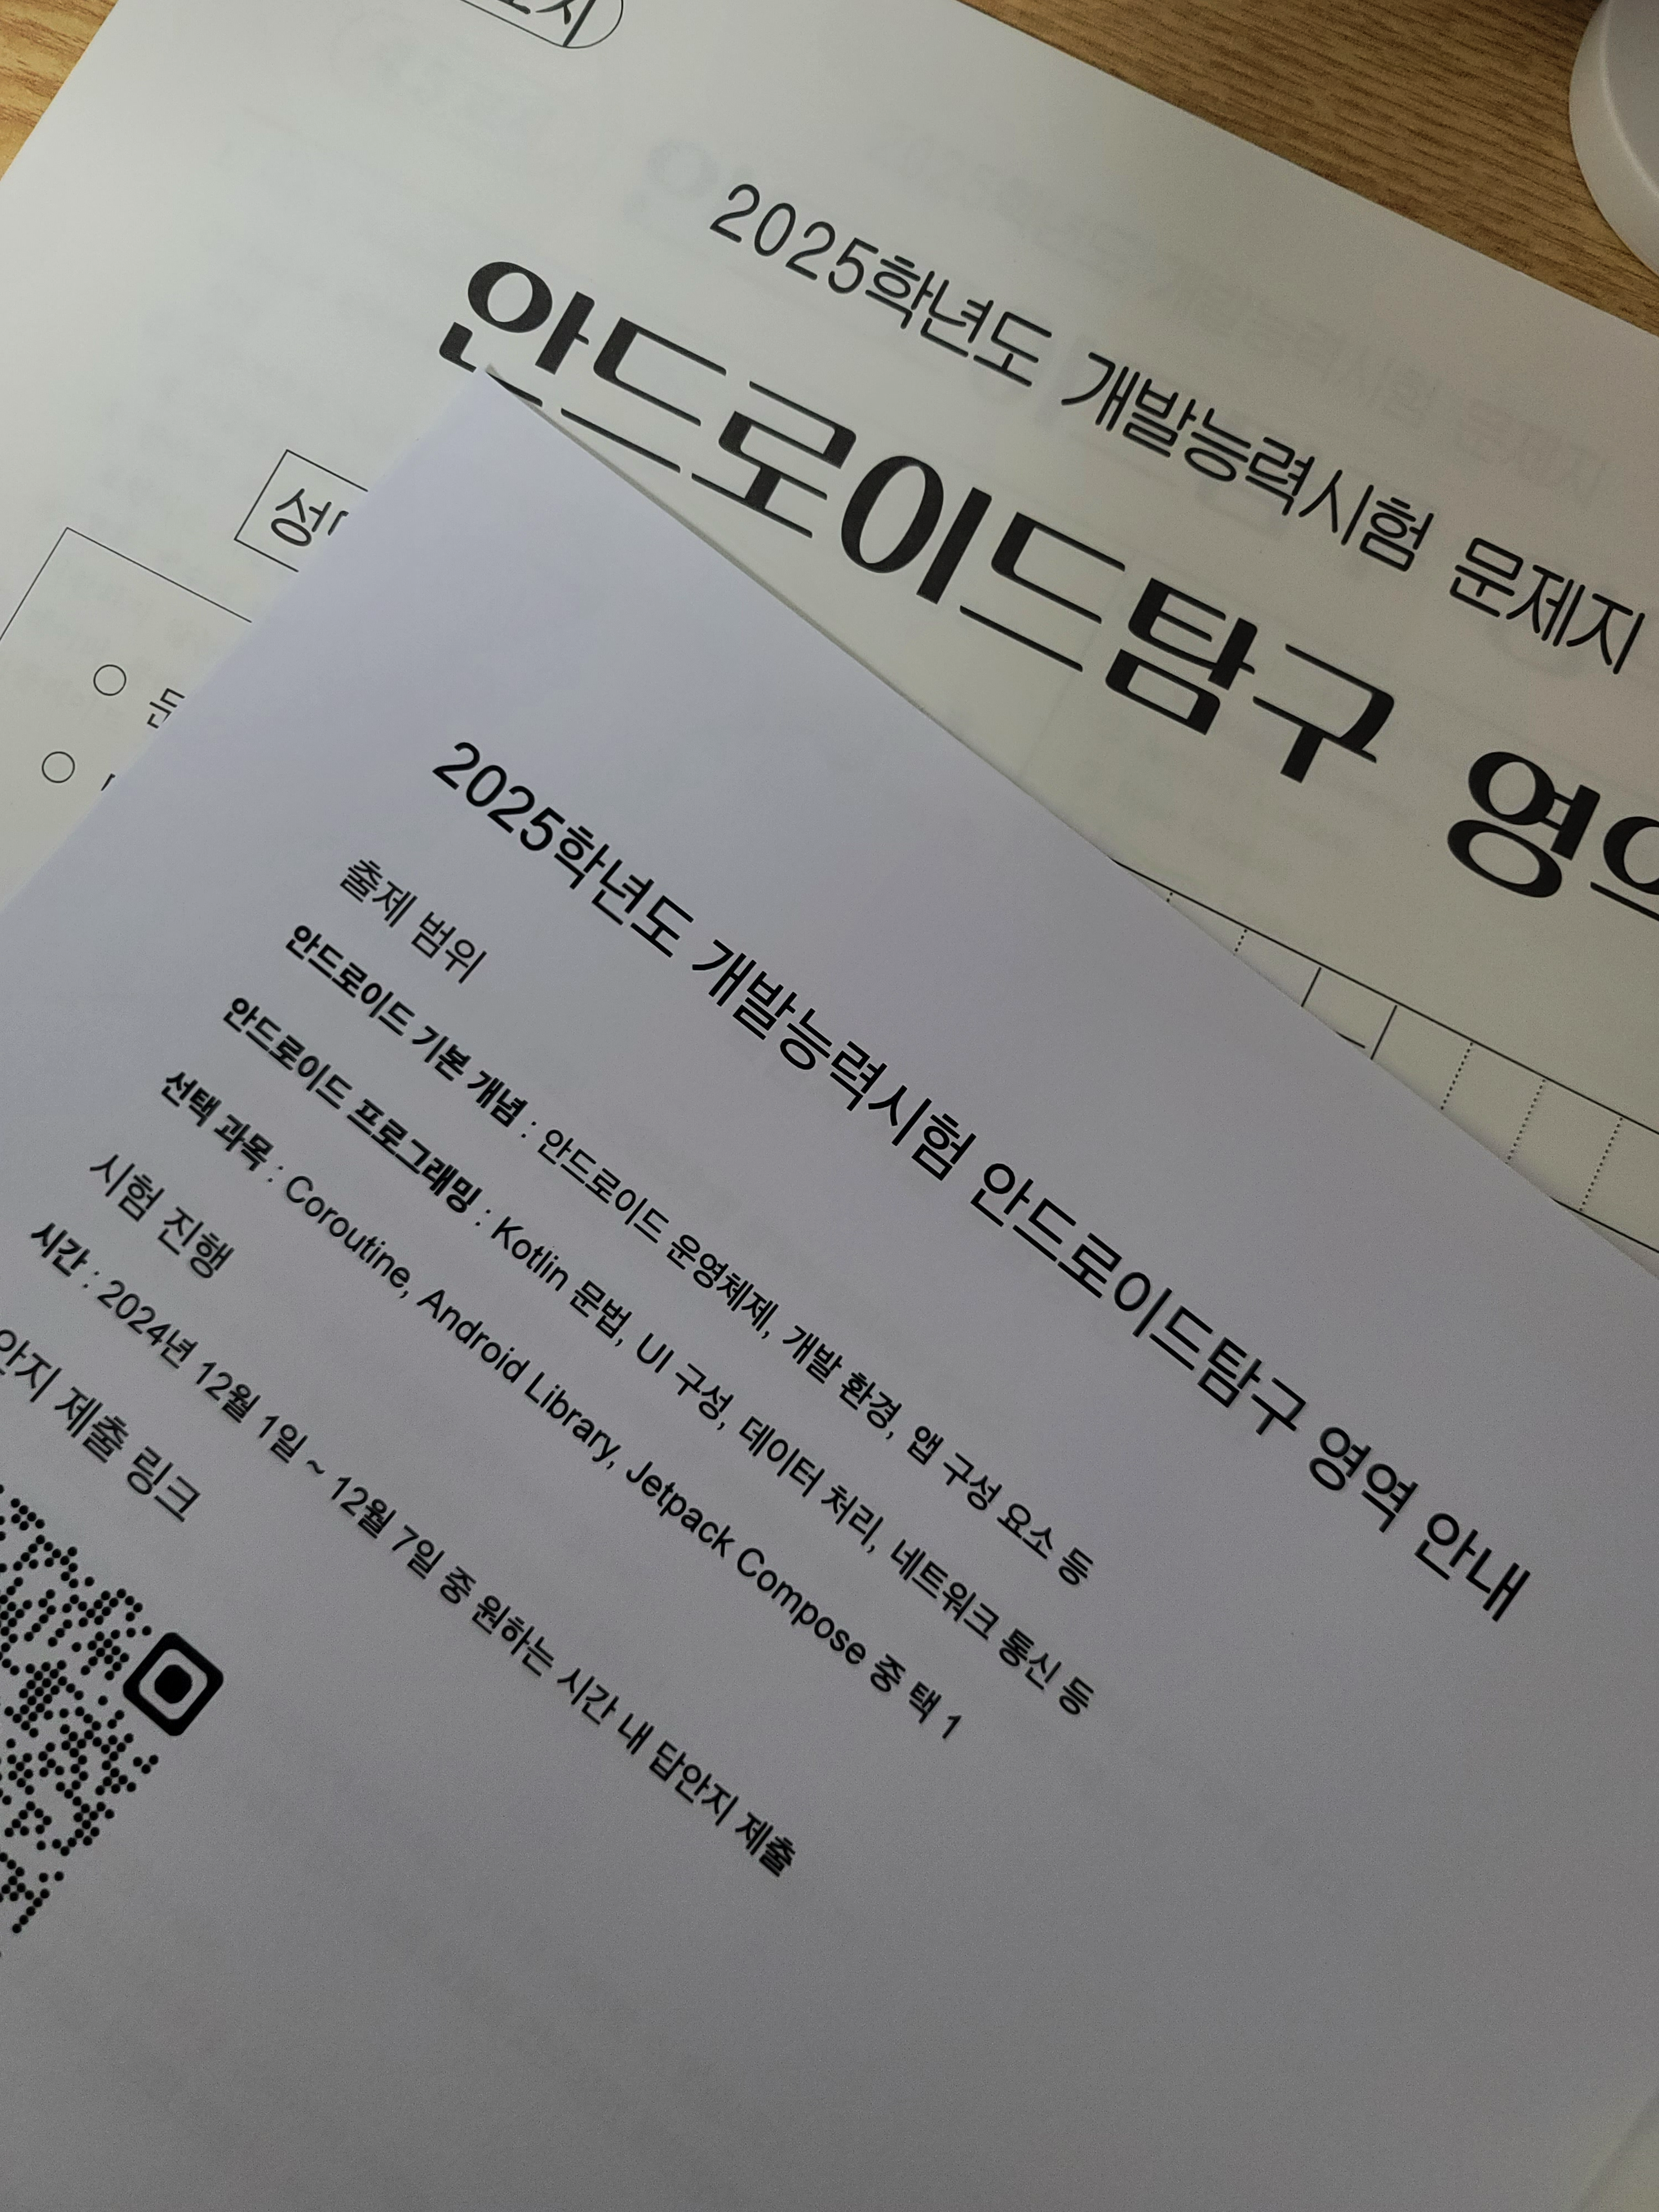 2025학년도 개발능력시험 문제지
안드로이드탐구
2025학년도 개발능력시험 안드로이드탐구 영역 안내
출제 범위
안드로이드 기본 개념 : 안드로이드 운영체제, 개발 환경, 앱 구성 요소 등
안드로이드 프로그래밍 : Kotlin 문법, UI 구성, 데이터 처리, 네트워크 통신 등
선택 과목 : Coroutine, Android Library, Jetpack Compose 중 택 1
시험 진행
시간 : 2024년 12월 1일 ~ 12월 7일 중 원하는 시간 내 답안지 제출
제출 링크